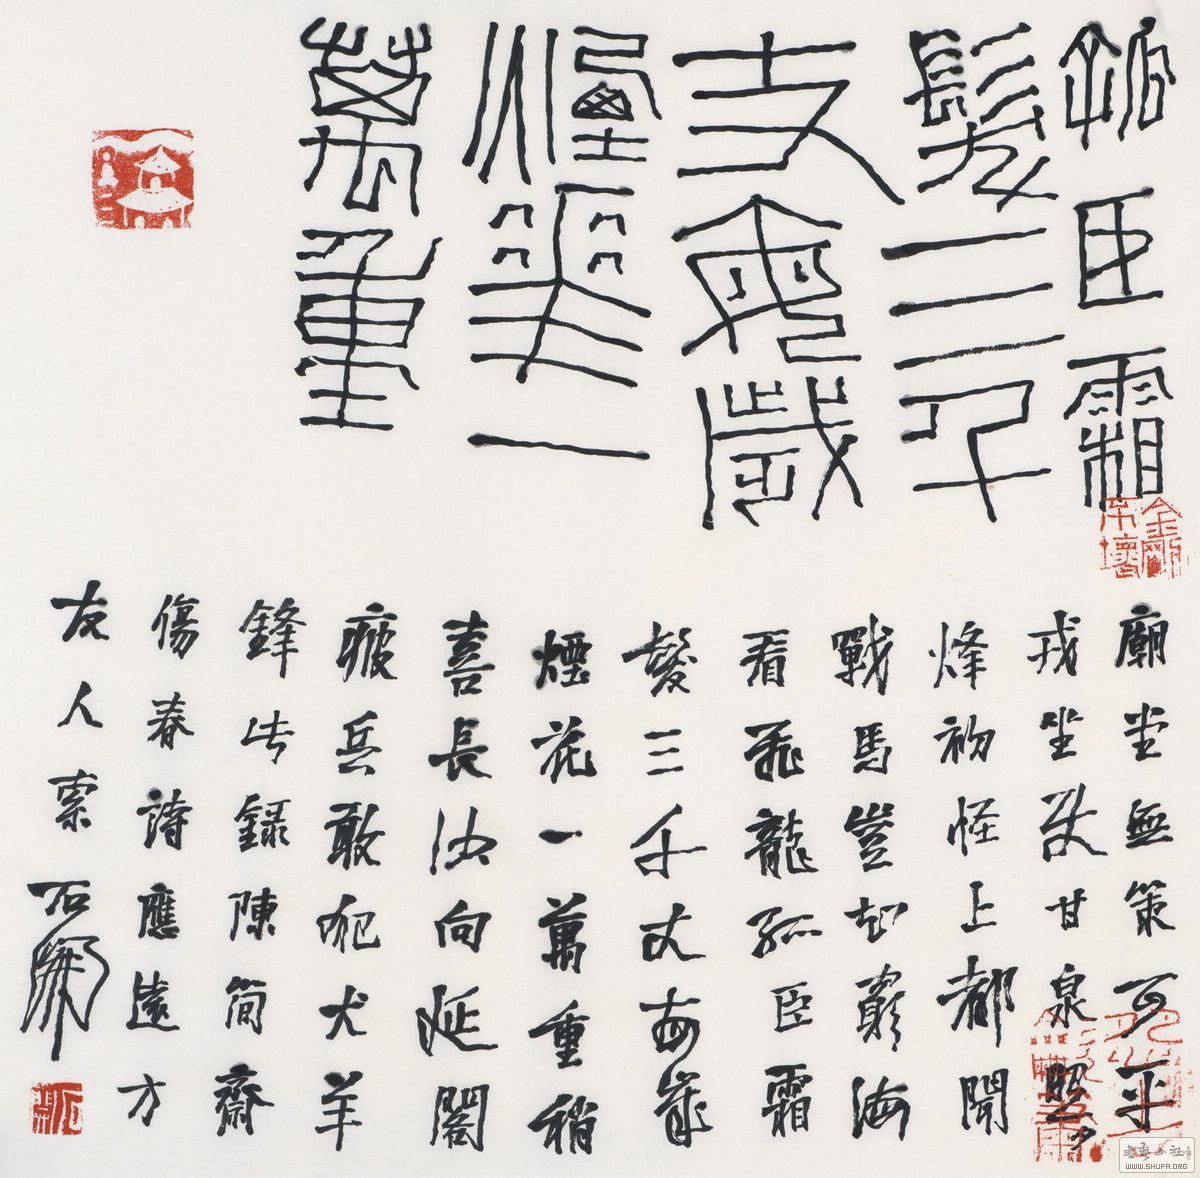 孤臣霜
髮三千
丈每歲
煙花一
萬重
金剛不壞
廟堂無策可平
戎坐使甘泉照夕
烽初怪上都聞
戰馬豈知窮海
看飛龍孤臣霜
髮三千丈每歲
煙花一萬重稍
喜長沙向延閣
疲兵敢犯犬羊
鋒此錄陳簡齋
傷春詩應遠方
友人索石
WWW.SHUFA.ORG